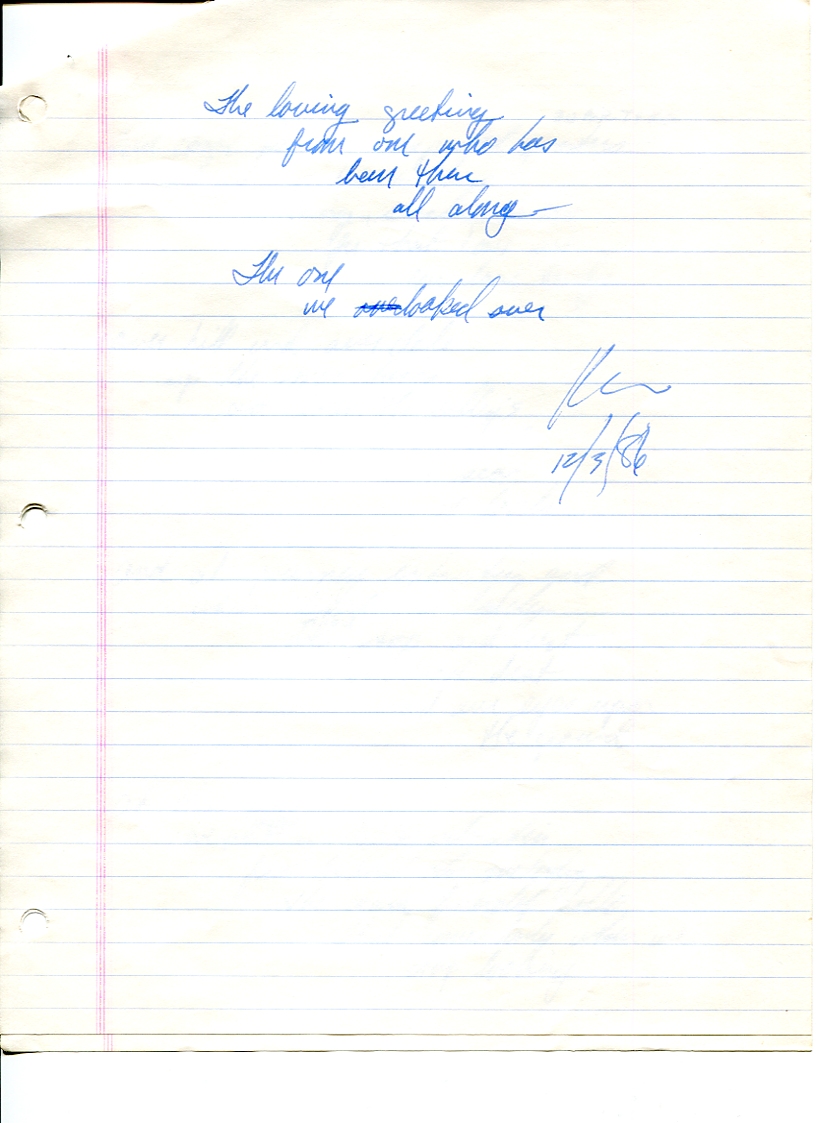 The loving greeting
from one who has
been there
all along —
The one
we looked over
12/3/86